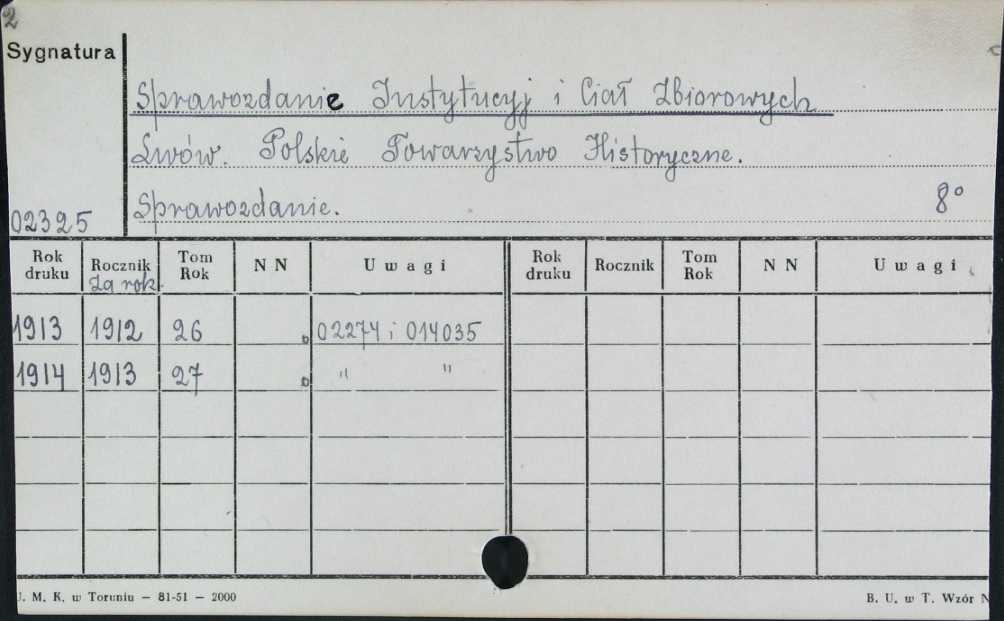 2
Sygnatura
Sprawozdanie Instytucyj i Ciał Zbiorowych
Lwów. Polskie Towarzystwo Historyczne.
Sprawozdanie. 8°
02325
Rok druku Rocznik Za rok Tom Rok NN Uwagi Rok druku Rocznik Tom Rok NN Uwagi
1913 1912 26 02274 i 014035
1914 1913 27 " "
U. M. K. w Toruniu — 81-51 — 2000 B. U. w T. Wzór N